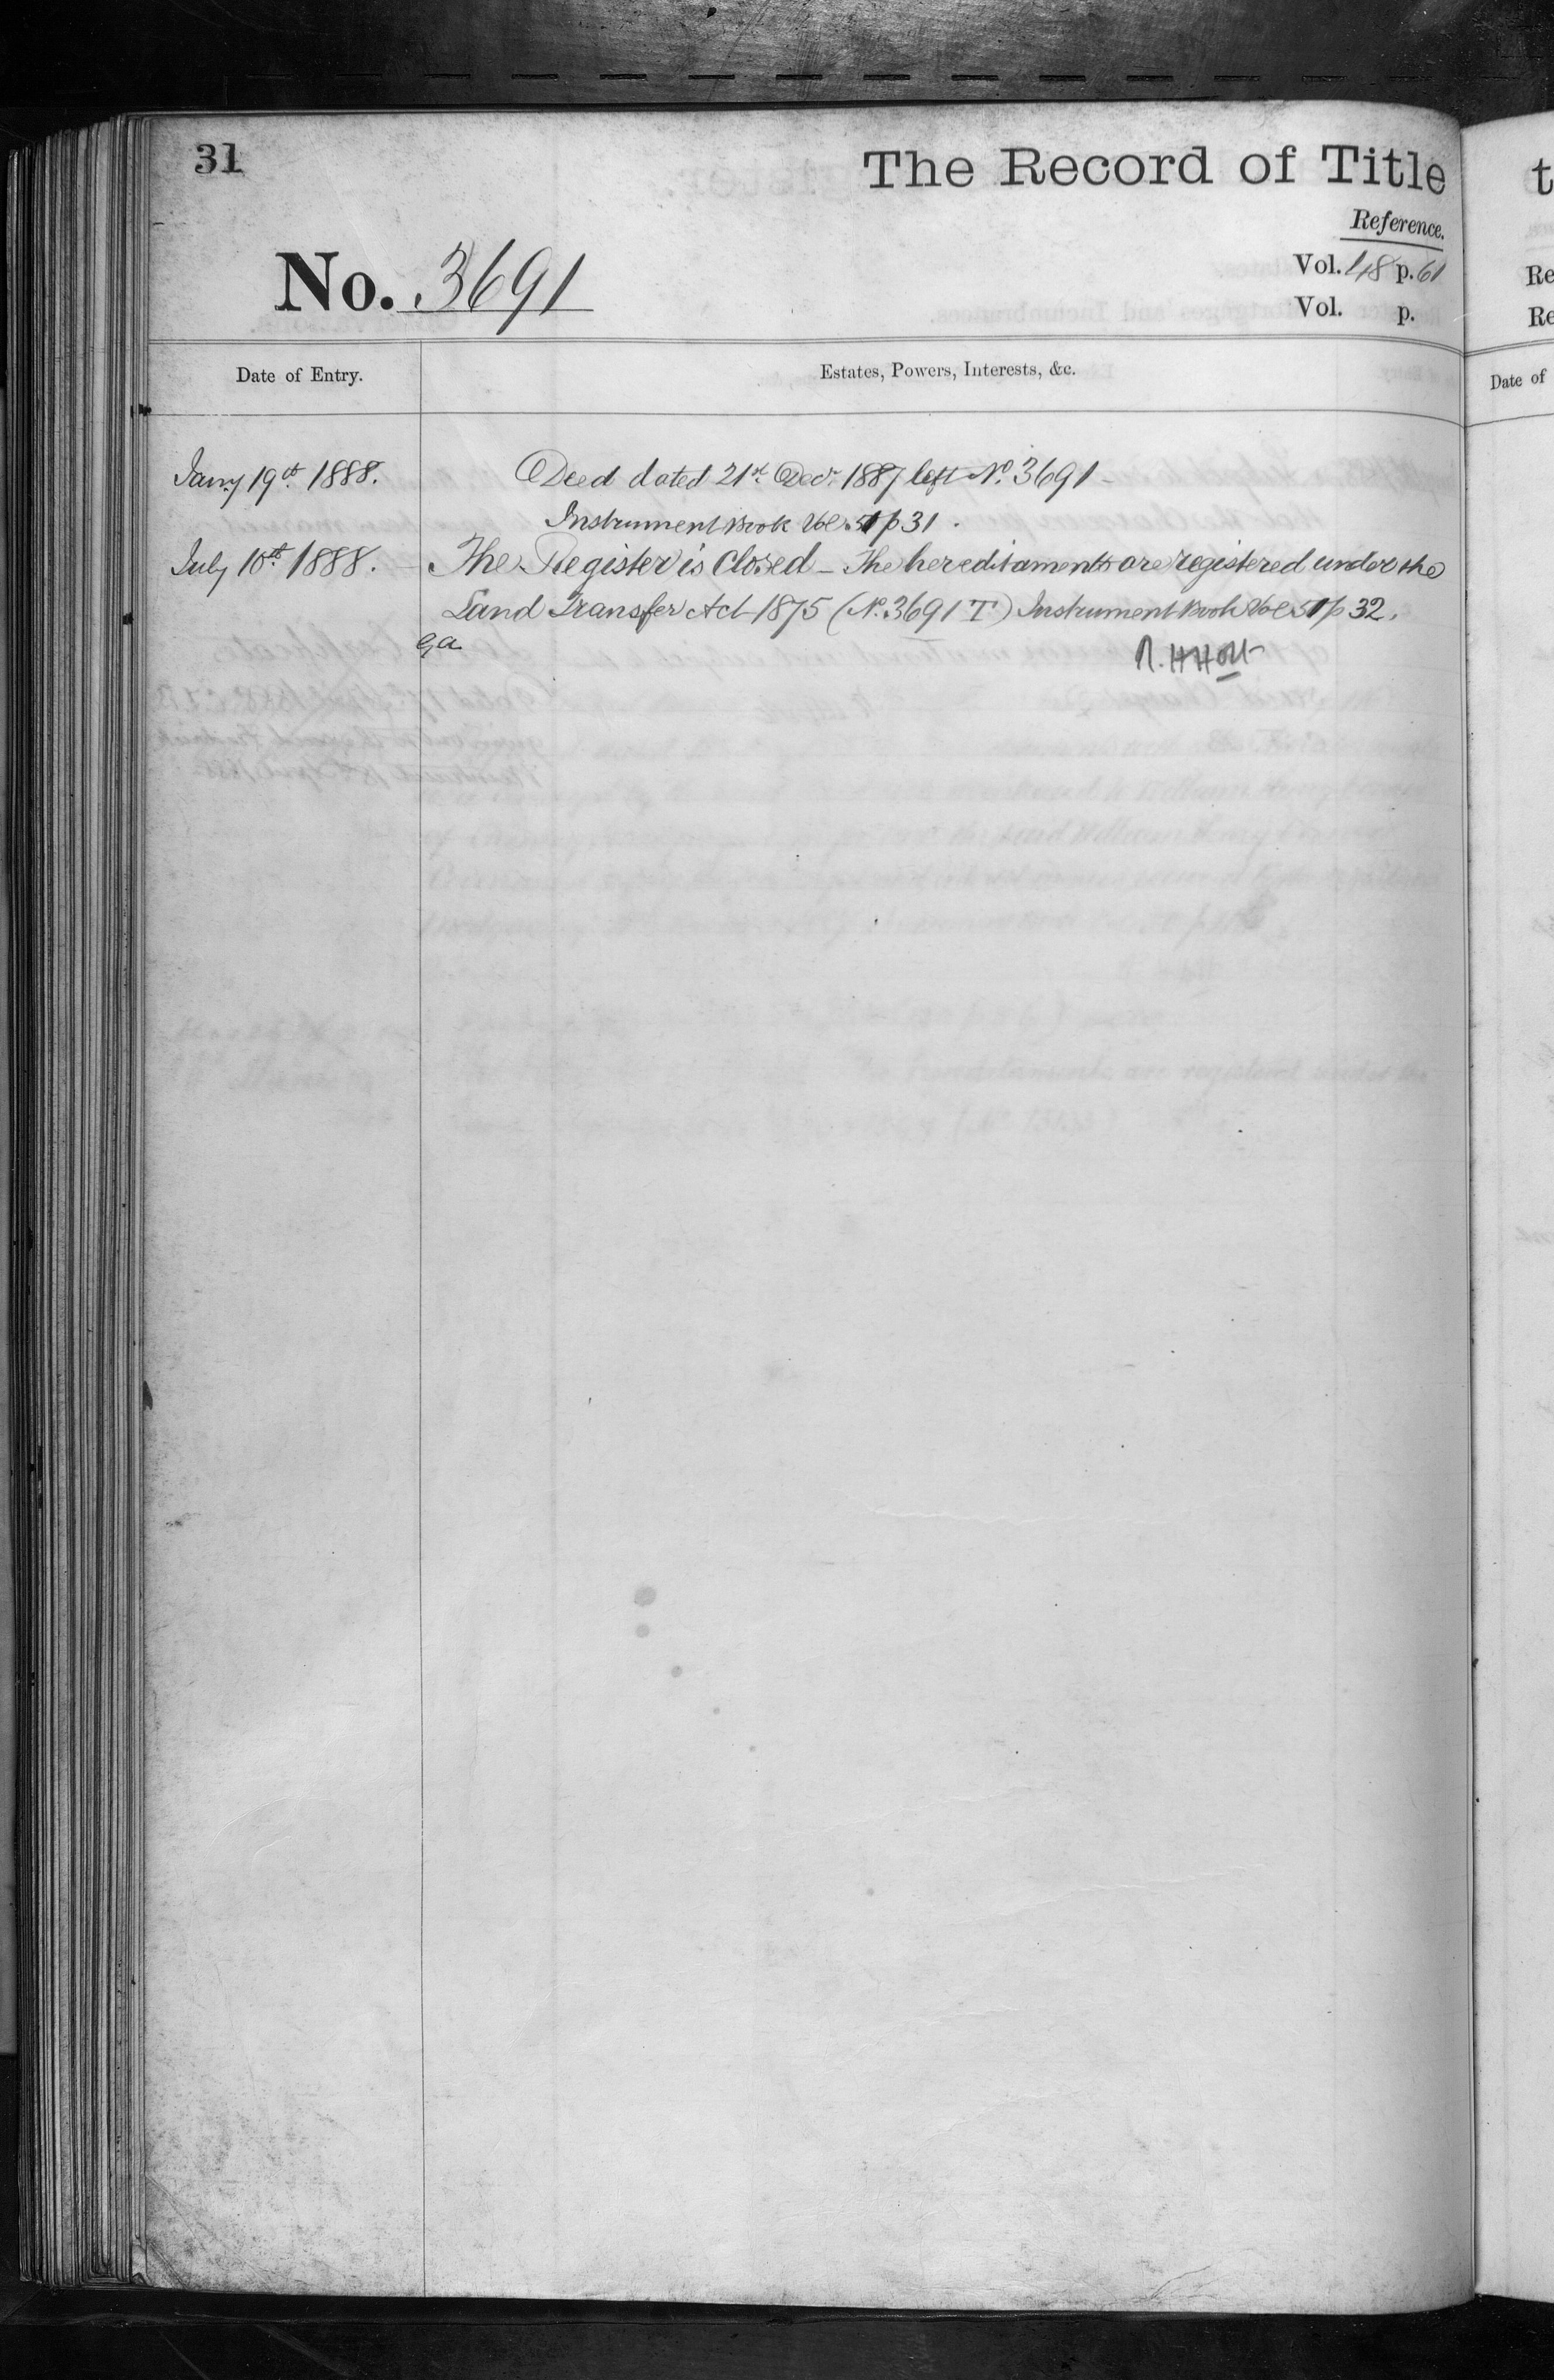 31
The Record of Title
Reference.
No. 3691
Vol. 48 p. 61
Vol. p.
Date of Entry.
Estates, Powers, Interests, &c.
Jany 19th 1888.
Deed dated 21st Decr. 1887 left No. 3691 -
Instrument Book Vol. 51 p 31.
July 10th 1888. -
The Register is Closed - The hereditaments are registered under the
Land Transfer Act 1875 (No. 3691 T) Instrument Book Vol 51 p 32.
R. H Holt
t
Re
Re
Date of